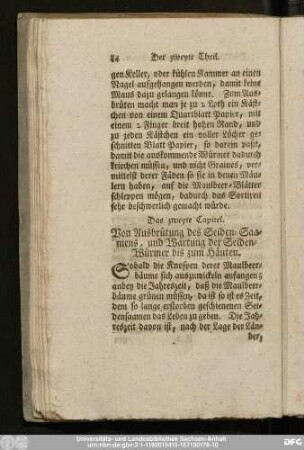 84 Der zweyte Theil.
gen Keller, oder kühlen Kammer an einen
Nagel aufgehangen werden, damit keine
Maus dazu gelangen könne. Zum Aus-
brüten macht man je zu 2 Loth ein Käst-
chen von einem Quartblatt Papier, mit
einem 2 Finger breit hohen Rand, und
zu jeden Kästchen ein voller Löcher ge-
schnitten Blatt Papier, so darein paßt,
damit die auskommende Würmer dadurch
kriechen müssen, und nicht Graines, ver-
mittelst derer Fäden so sie in denen Mäu-
lern haben, auf die Maulbeer-Blätter
schleppen mögen, dadurch das Sortiren
sehr beschwerlich gemacht würde.
Das zweyte Capitel.
Von Ausbrütung des Seiden-Saa-
mens, und Wartung der Seiden-
Würmer bis zum Häuten.
Sobald die Knospen derer Maulbeer-
bäume sich auszuwickeln anfangen;
anbey die Jahreszeit, daß die Maulbeer-
bäume grünen müssen, da ist so ist es Zeit,
dem so lange erstorben geschienenen Sei-
densaamen das Leben zu geben. Die Jah-
reszeit davon ist, nach der Lage der Län-
der,
Universitäts- und Landesbibliothek Sachsen-Anhalt
DFG